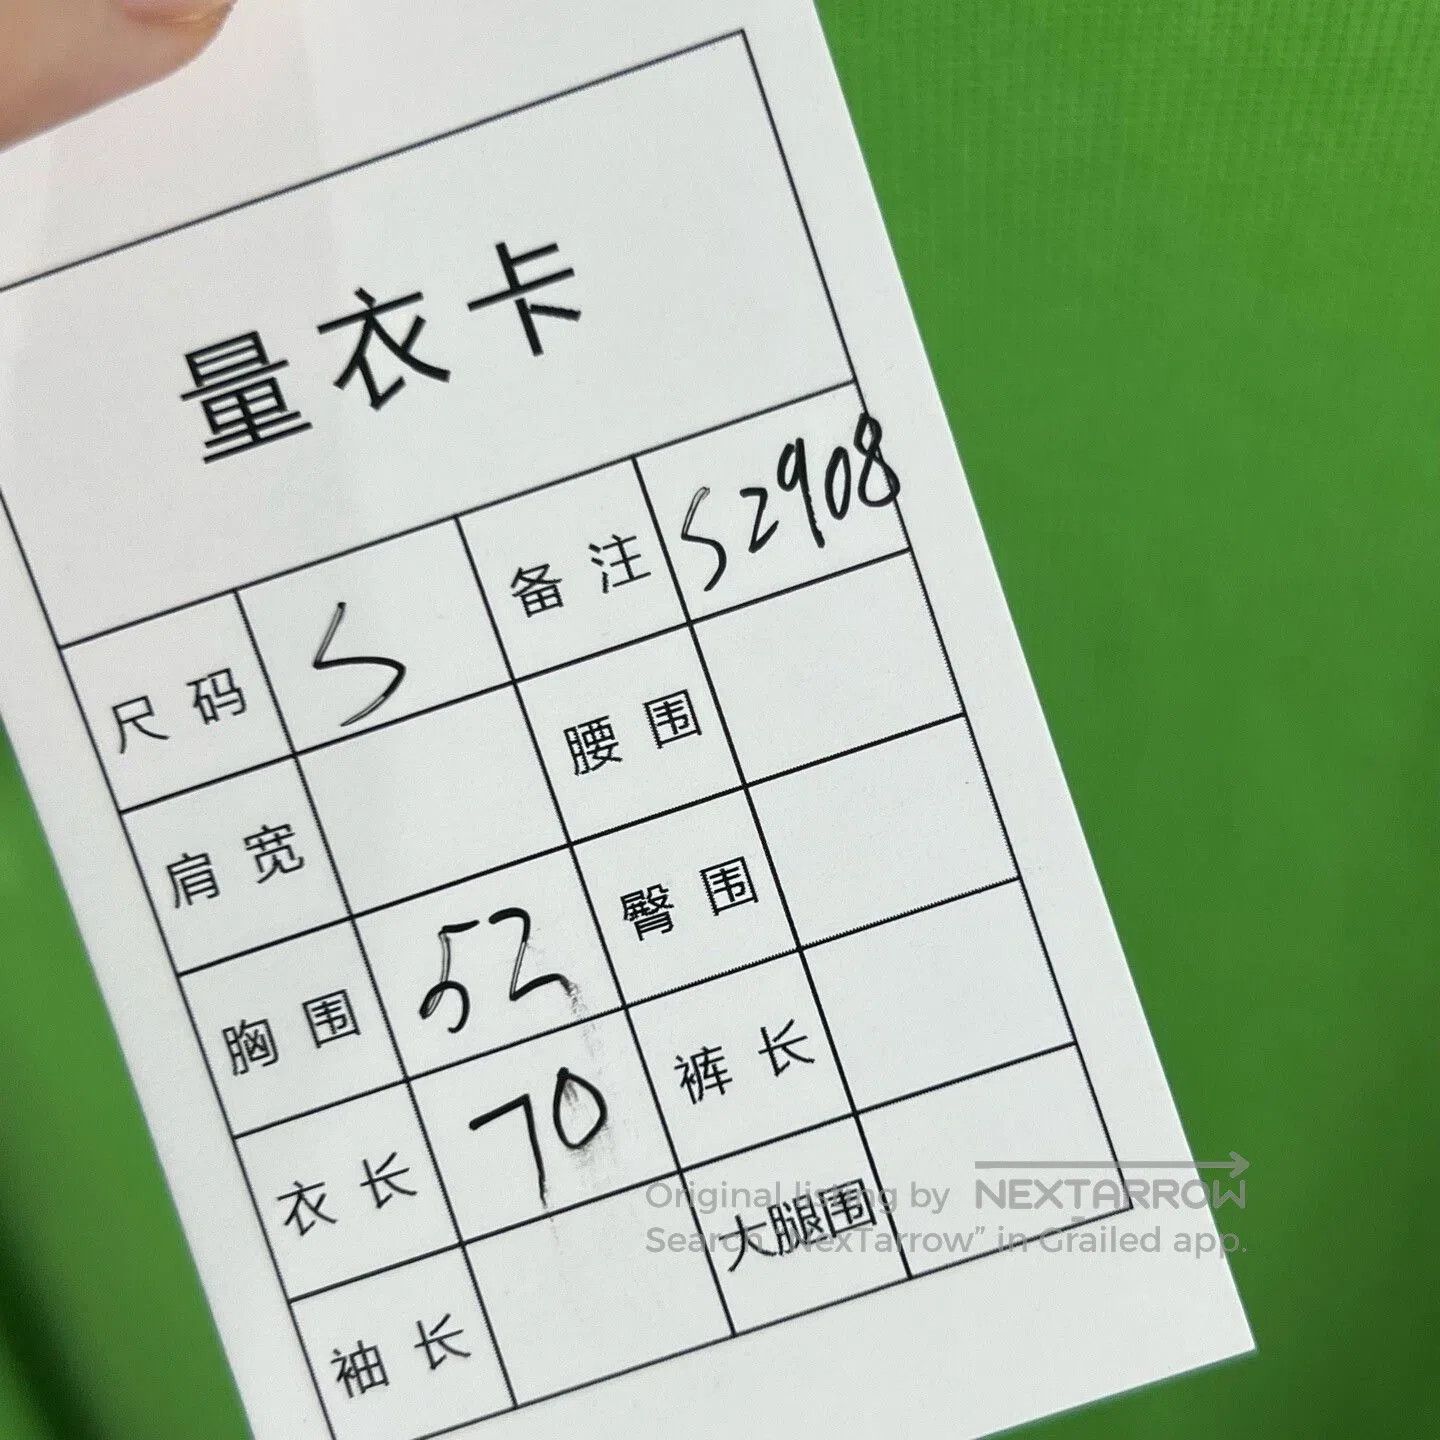 量衣卡
尺码 S 备注 S2908
肩宽 腰围
胸围 52 臀围
衣长 70 裤长
袖长 大腿围
Original listing by NEXTARROW
Search "NexTarrow" in Grailed app.